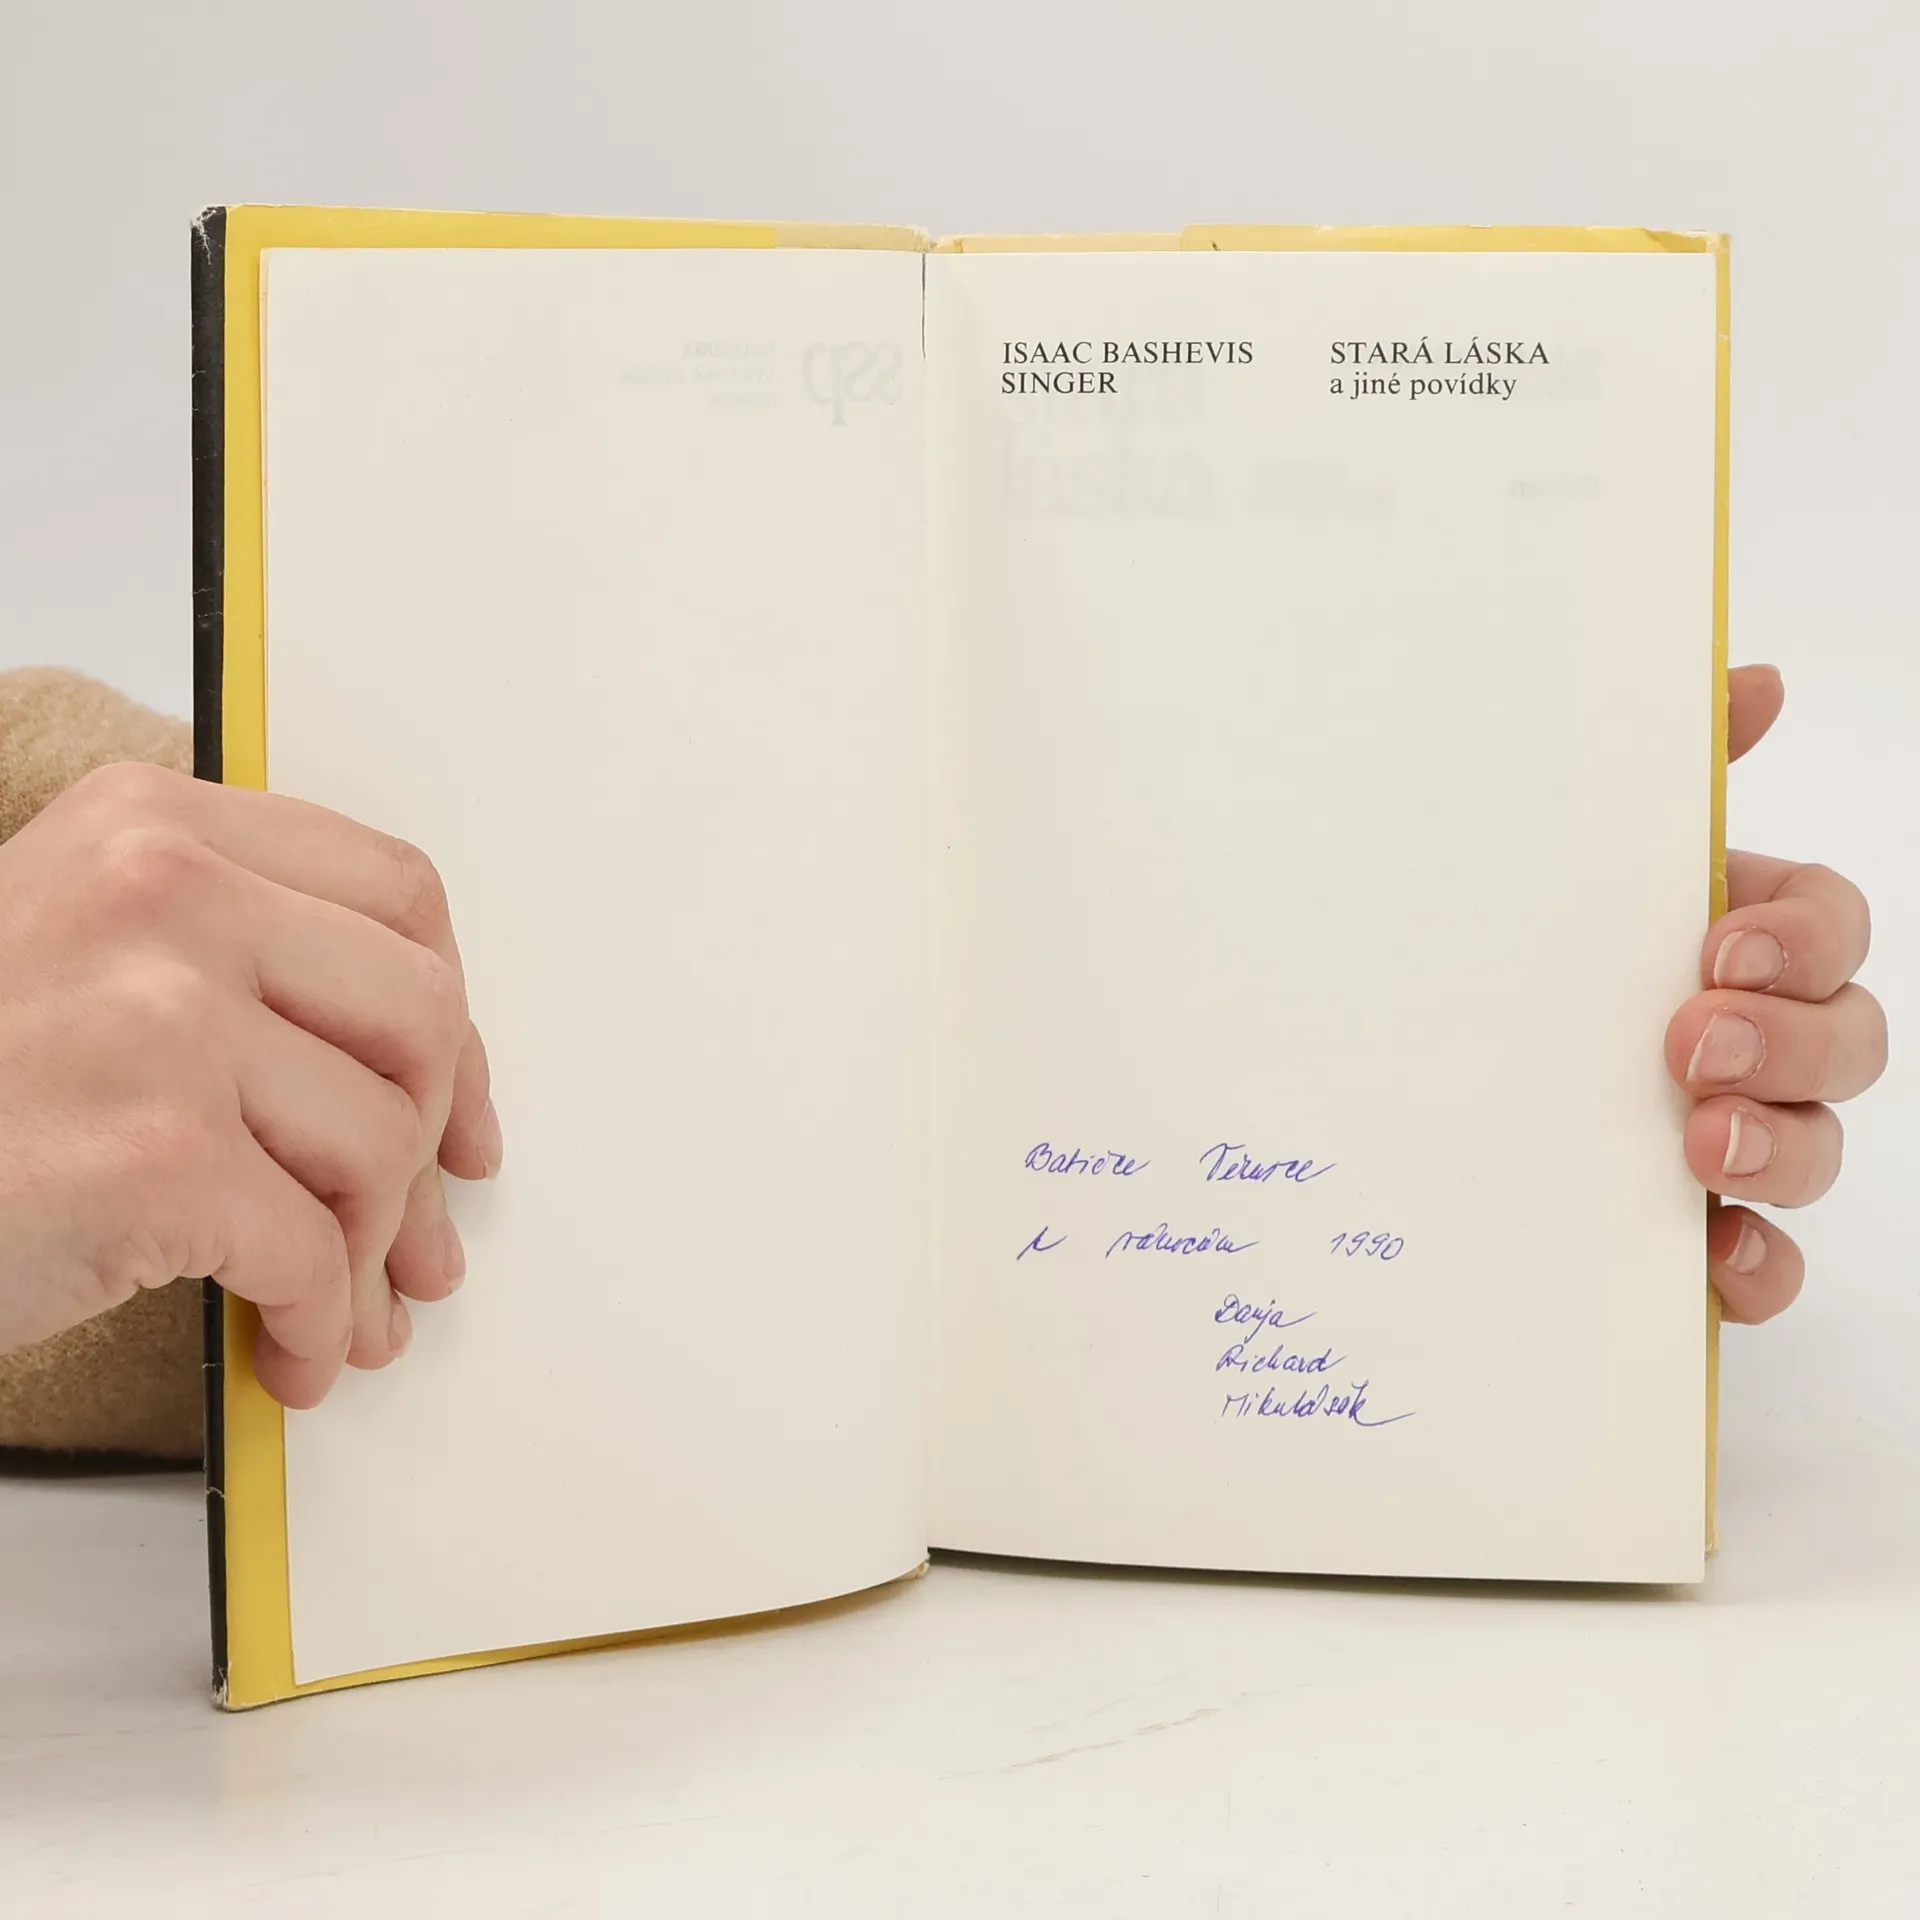 ISAAC BASHEVIS
SINGER
STARÁ LÁSKA
a jiné povídky
ssp
Babičce Věrusce
k vánocům 1990
Danja
Richard
Mikulášek